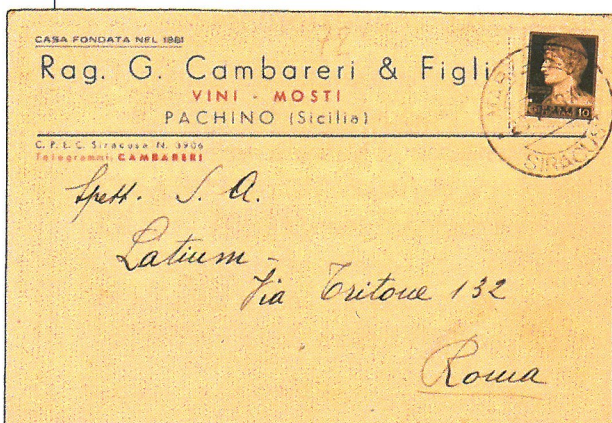 CASA FONDATA NEL 1881
72
Rag. G. Cambareri & Figli
VINI - MOSTI
PACHINO (Sicilia)
C. P. E. C. Siracusa N. 3906
Telegrammi: CAMBARERI
10
SIRACUS
Spett. S. A.
Latium -
Via Tritone 132
Roma